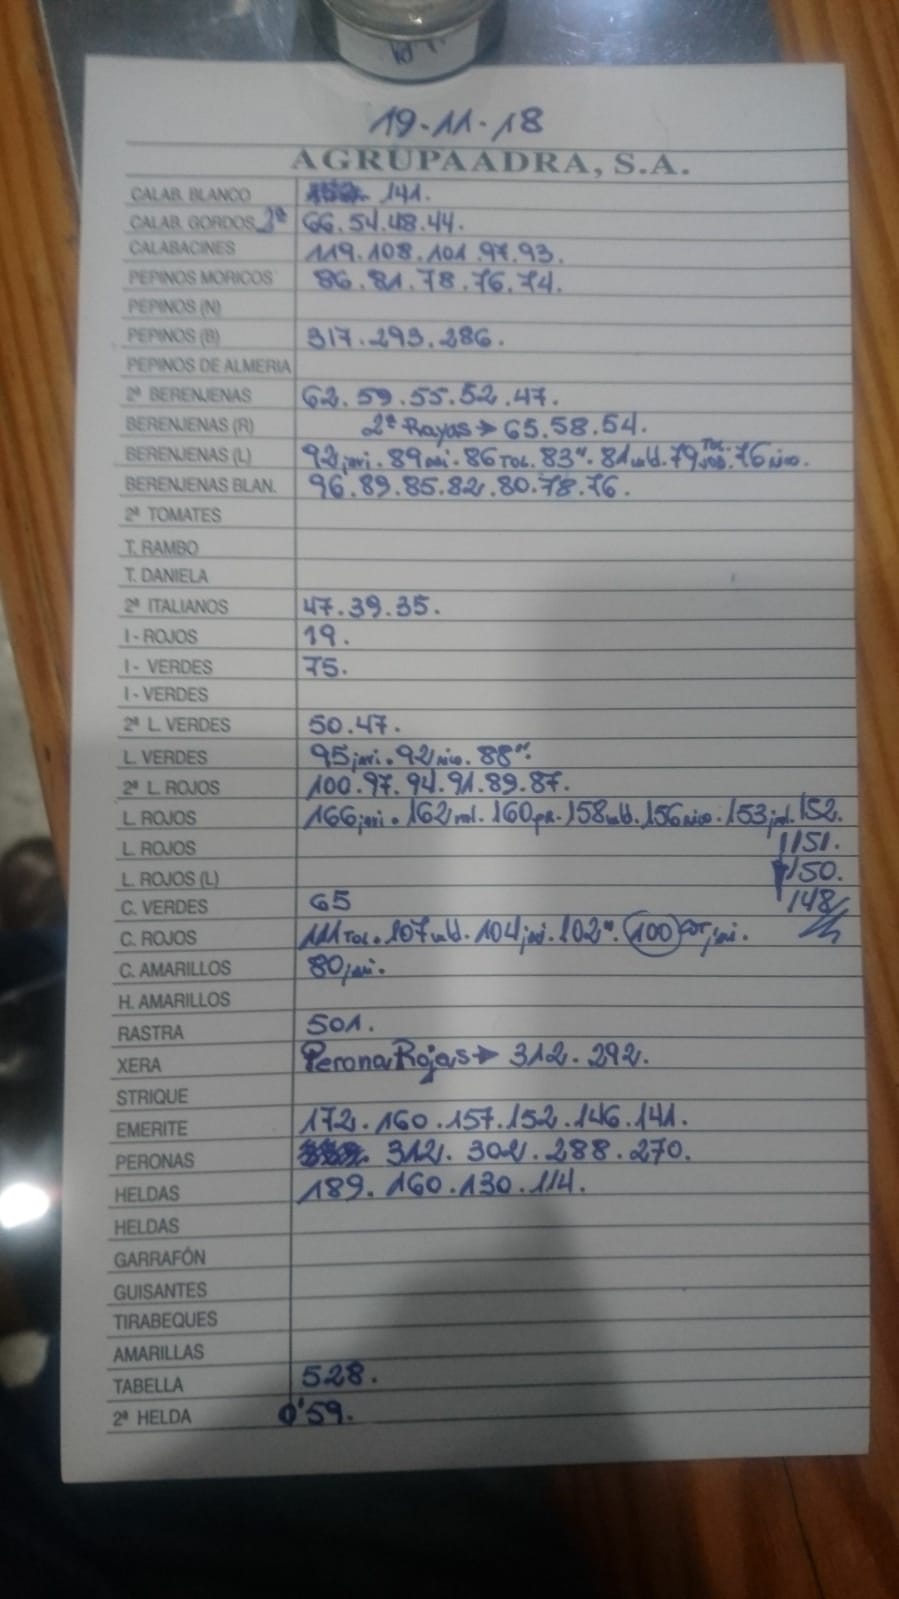 19-11-18
AGRUPAADRA, S.A.
CALAB. BLANCO 141.
CALAB. GORDOS 2ª 66.54.48.44.
CALABACINES 119.108.101.97.93.
PEPINOS MORICOS 86.81.78.76.74.
PEPINOS (N)
PEPINOS (B) 317.293.286.
PEPINOS DE ALMERIA
2ª BERENJENAS 62.59.55.52.47.
BERENJENAS (R) 2ª Rayas→65.58.54.
BERENJENAS (L) 92 javi. 89 86 TOL. 83". 81 79 TOL. 76 nico.
BERENJENAS BLAN. 96.89.85.82.80.78.76.
2ª TOMATES
T. RAMBO
T. DANIELA
2ª ITALIANOS 47.39.35.
I - ROJOS 19.
I - VERDES 75.
I - VERDES
2ª L. VERDES 50.47.
L. VERDES 95 javi. 92 nico. 88".
2ª L. ROJOS 100.97.94.91.89.87.
L. ROJOS 166 javi. 162 160 158 156 nico. 153 152.
L. ROJOS 151.
L. ROJOS (L) 150.
C. VERDES 65 148
C. ROJOS 111 TOL. 107 104 102". 100
C. AMARILLOS 80 javi.
H. AMARILLOS
RASTRA 501.
XERA Perona Rojas→ 312.292.
STRIQUE
EMERITE 172.160.157.152.146.141.
PERONAS 312.302.288.270.
HELDAS 189.160.130.114.
HELDAS
GARRAFÓN
GUISANTES
TIRABEQUES
AMARILLAS
TABELLA 528.
2ª HELDA 0'59.